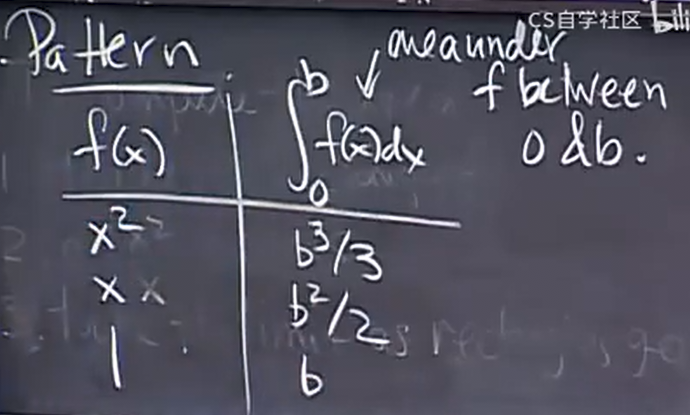 CS自学社区 bili
Pattern
area under
f between
0 & b.
f(x) ∫₀ᵇ f(x)dx
x² b³/3
x b²/2
1 b